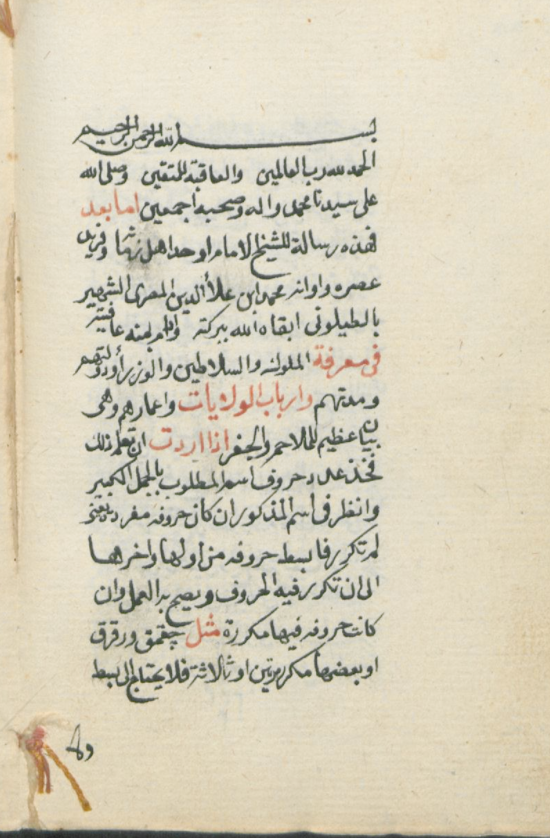 بسم الله الرحمن الرحيم
الحمد لله رب العالمين والعاقبة للمتقين وصلى الله
على سيدنا محمد واله وصحبه اجمعين اما بعد
فهذه رسالة للشيخ الامام اوحد اهل زمانه وفريد
عصره واوانه محمد ابن علأ الدين المصرى الشهير
بالطيلونى ابقاه الله ببركته والهم بمنه عافيته
فى معرفة الملوك والسلاطين والوزرأ ودولتهم
ومدتهم وارباب الولايات واعمارهم وهى
بيان عظيم للملاحم والجفر اذا اردت ان تعلم ذلك
فخذ عدد حروف اسم المطلوب بالجمل الكبير
وانظر فى اسم المذكور ان كان حروفه مفرد يعنى
لم تكرر فابسط حروفه من اولها واخرها
الى ان تكرر فيه الحروف ويصح به العمل وان
كانت حروفه فيها مكررة مثل جقمق ورقرق
او بعضها مكرر مرتين او ثالاثة فلا يحتاج الى بسط